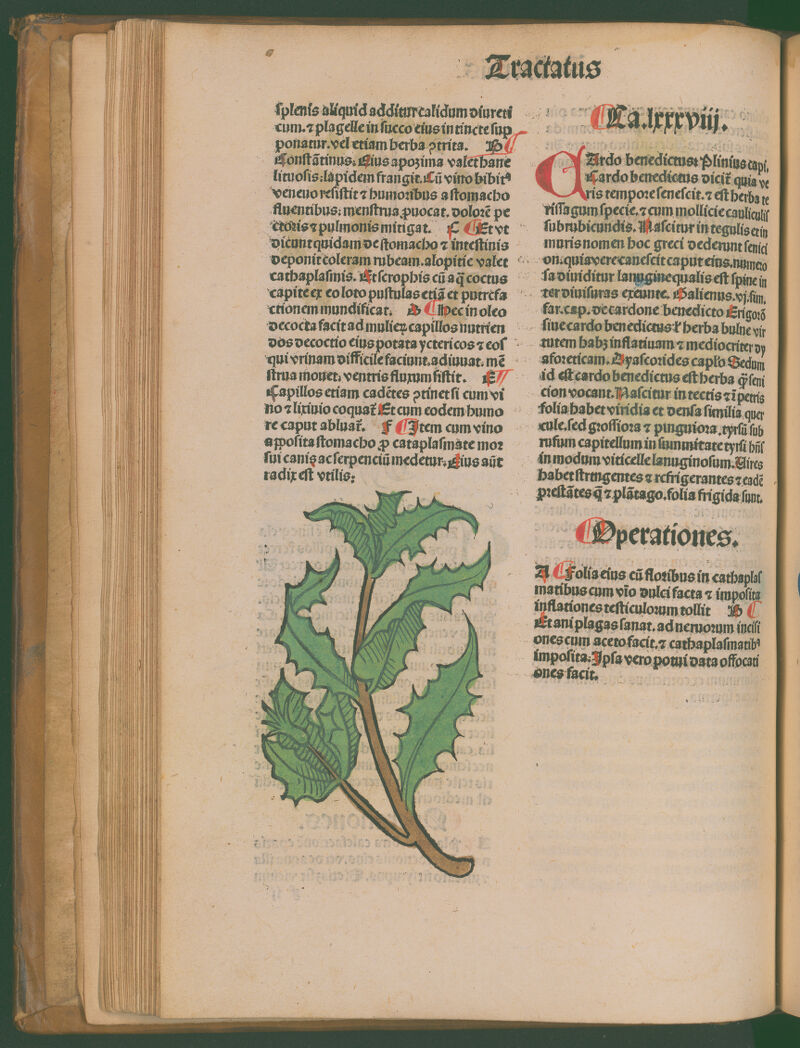 Tractatus
splenis aliquid additur calidum diureti
cum. ⁊ plagelle in succo eius intincte sup
ponatur. vel etiam herba ꝯtrita. B ¶
Constãtinus. Eius apozima valet hane
lituosis: lapidem frangit. Cũ vino bibitꝰ
veneno resistit ⁊ humoribus a stomacho
fluentibus: menstrua ꝓuocat. dolorẽ pe
ctoris ⁊ pulmonis mitigat. C ¶ Et vt
dicunt quidam de stomacho ⁊ intestinis
deponit coleram rubeam. alopitie valet
cathaplasmis. Et scrophis cũ aq̃ coctus
capite ex eo loto pustulas etiã et putrefa
ctionem mundificat. D ¶ Hec in oleo
decocta facit ad mulierꝝ capillos nutrien
dos decoctio eius potata yctericos ⁊ eos
qui vrinam difficile faciunt. adiuuat. mẽ
strua mouet: ventris fluxum sistit. E ¶
Capillos etiam cadẽtes ꝯtinet si cum vi
no ⁊ lixiuio coquat᷑ Et cum eodem humo
re caput abluat᷑. F ¶ Item cum vino
apposita stomacho ꝓ cataplasmate mor
sui canis ac serpenciũ medetur. Eius aũt
radix est vtilis:
¶ Ca. lxxxviij.
CArdo benedictus: Plinius capi.
Cardo benedictus dicit᷑ quia ve
ris tempore senescit. ⁊ est herba te
rissagum specie. ⁊ cum mollicie cauliculis
subrubicundis. Nascitur in tegulis et in
muris nomen hoc greci dederunt senici
on. quia vere canescit caput eius. numero
sa diuiditur lanugine qualis est spine in
ter diuisuras exeunte. Galienus. vj. sim.
far. cap. de cardone benedicto Erigorõ
siue cardo benedictus ł herba bulne vir
tutem habꝫ inflatiuam ⁊ mediocriter dy
aforeticam. Dyascorides capło Sedum
id est cardo benedictus est herba q̃ʒ seni
cion vocant. Nascitur in tectis ⁊ ĩ petris
folia habet viridia et densa similia quer
cule. sed grossiora ⁊ pinguiora. tyrsũ sub
rufum capitellum in summitate tyrsi hñs
in modum viticelle lanuginosum. Uires
habet stringentes ⁊ refrigerantes ⁊ eadẽ
prestãtes q̃ ⁊ plãtago. folia frigida sunt.
¶ Operationes.
A ¶ Folia eius cũ floribus in cathaplas
matibus cum vĩo dulci facta ⁊ imposita
inflationes testiculorum tollit B ¶
Et ani plagas sanat. ad neruorum incisi
ones cum aceto facit. ⁊ cathaplasmatibꝰ
imposita. Ipsa vero potui data offocati
ones facit.